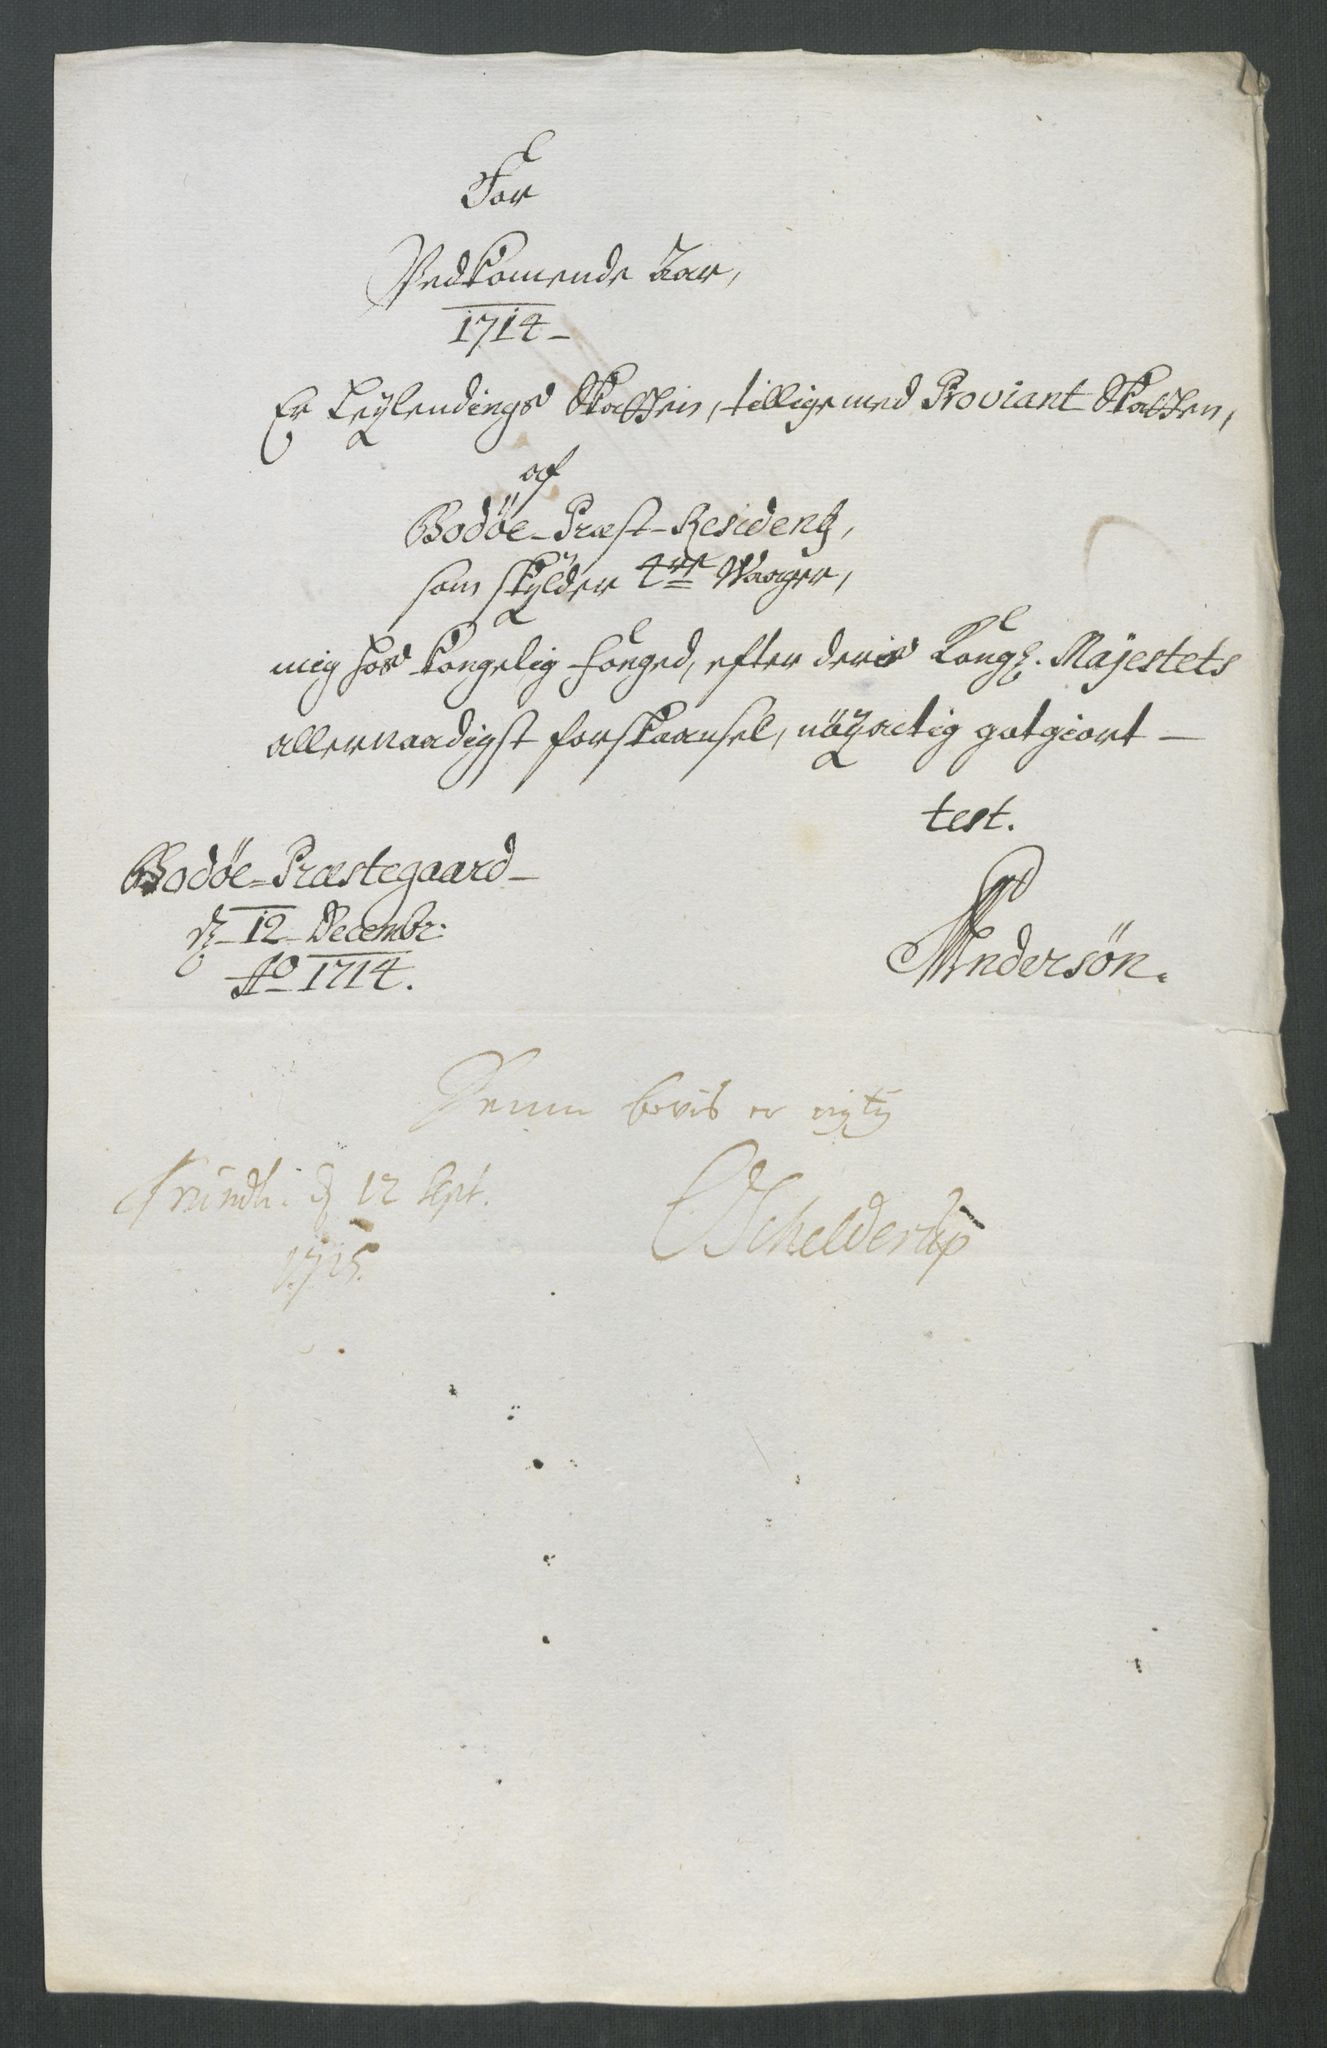 For
Vedkomende Aar,
1714 -
Er Leylendings Skatten, tillige med Proviant Skatten,
af
Bodöe - Præst - Residentz,
som skÿlder 4re Waager,
mig hos kongelig Fouged, efter deris Kongl. Majestets
allernaadigst forskaansel, nöyactig gotgiort -
test.
Bodöe - Præstegaard -
d. 12 Decembr:
Ao 1714.
Andersön.
Denne bevis er rigtig
Trundh: d 12 Sept.
1715.
Schelderup